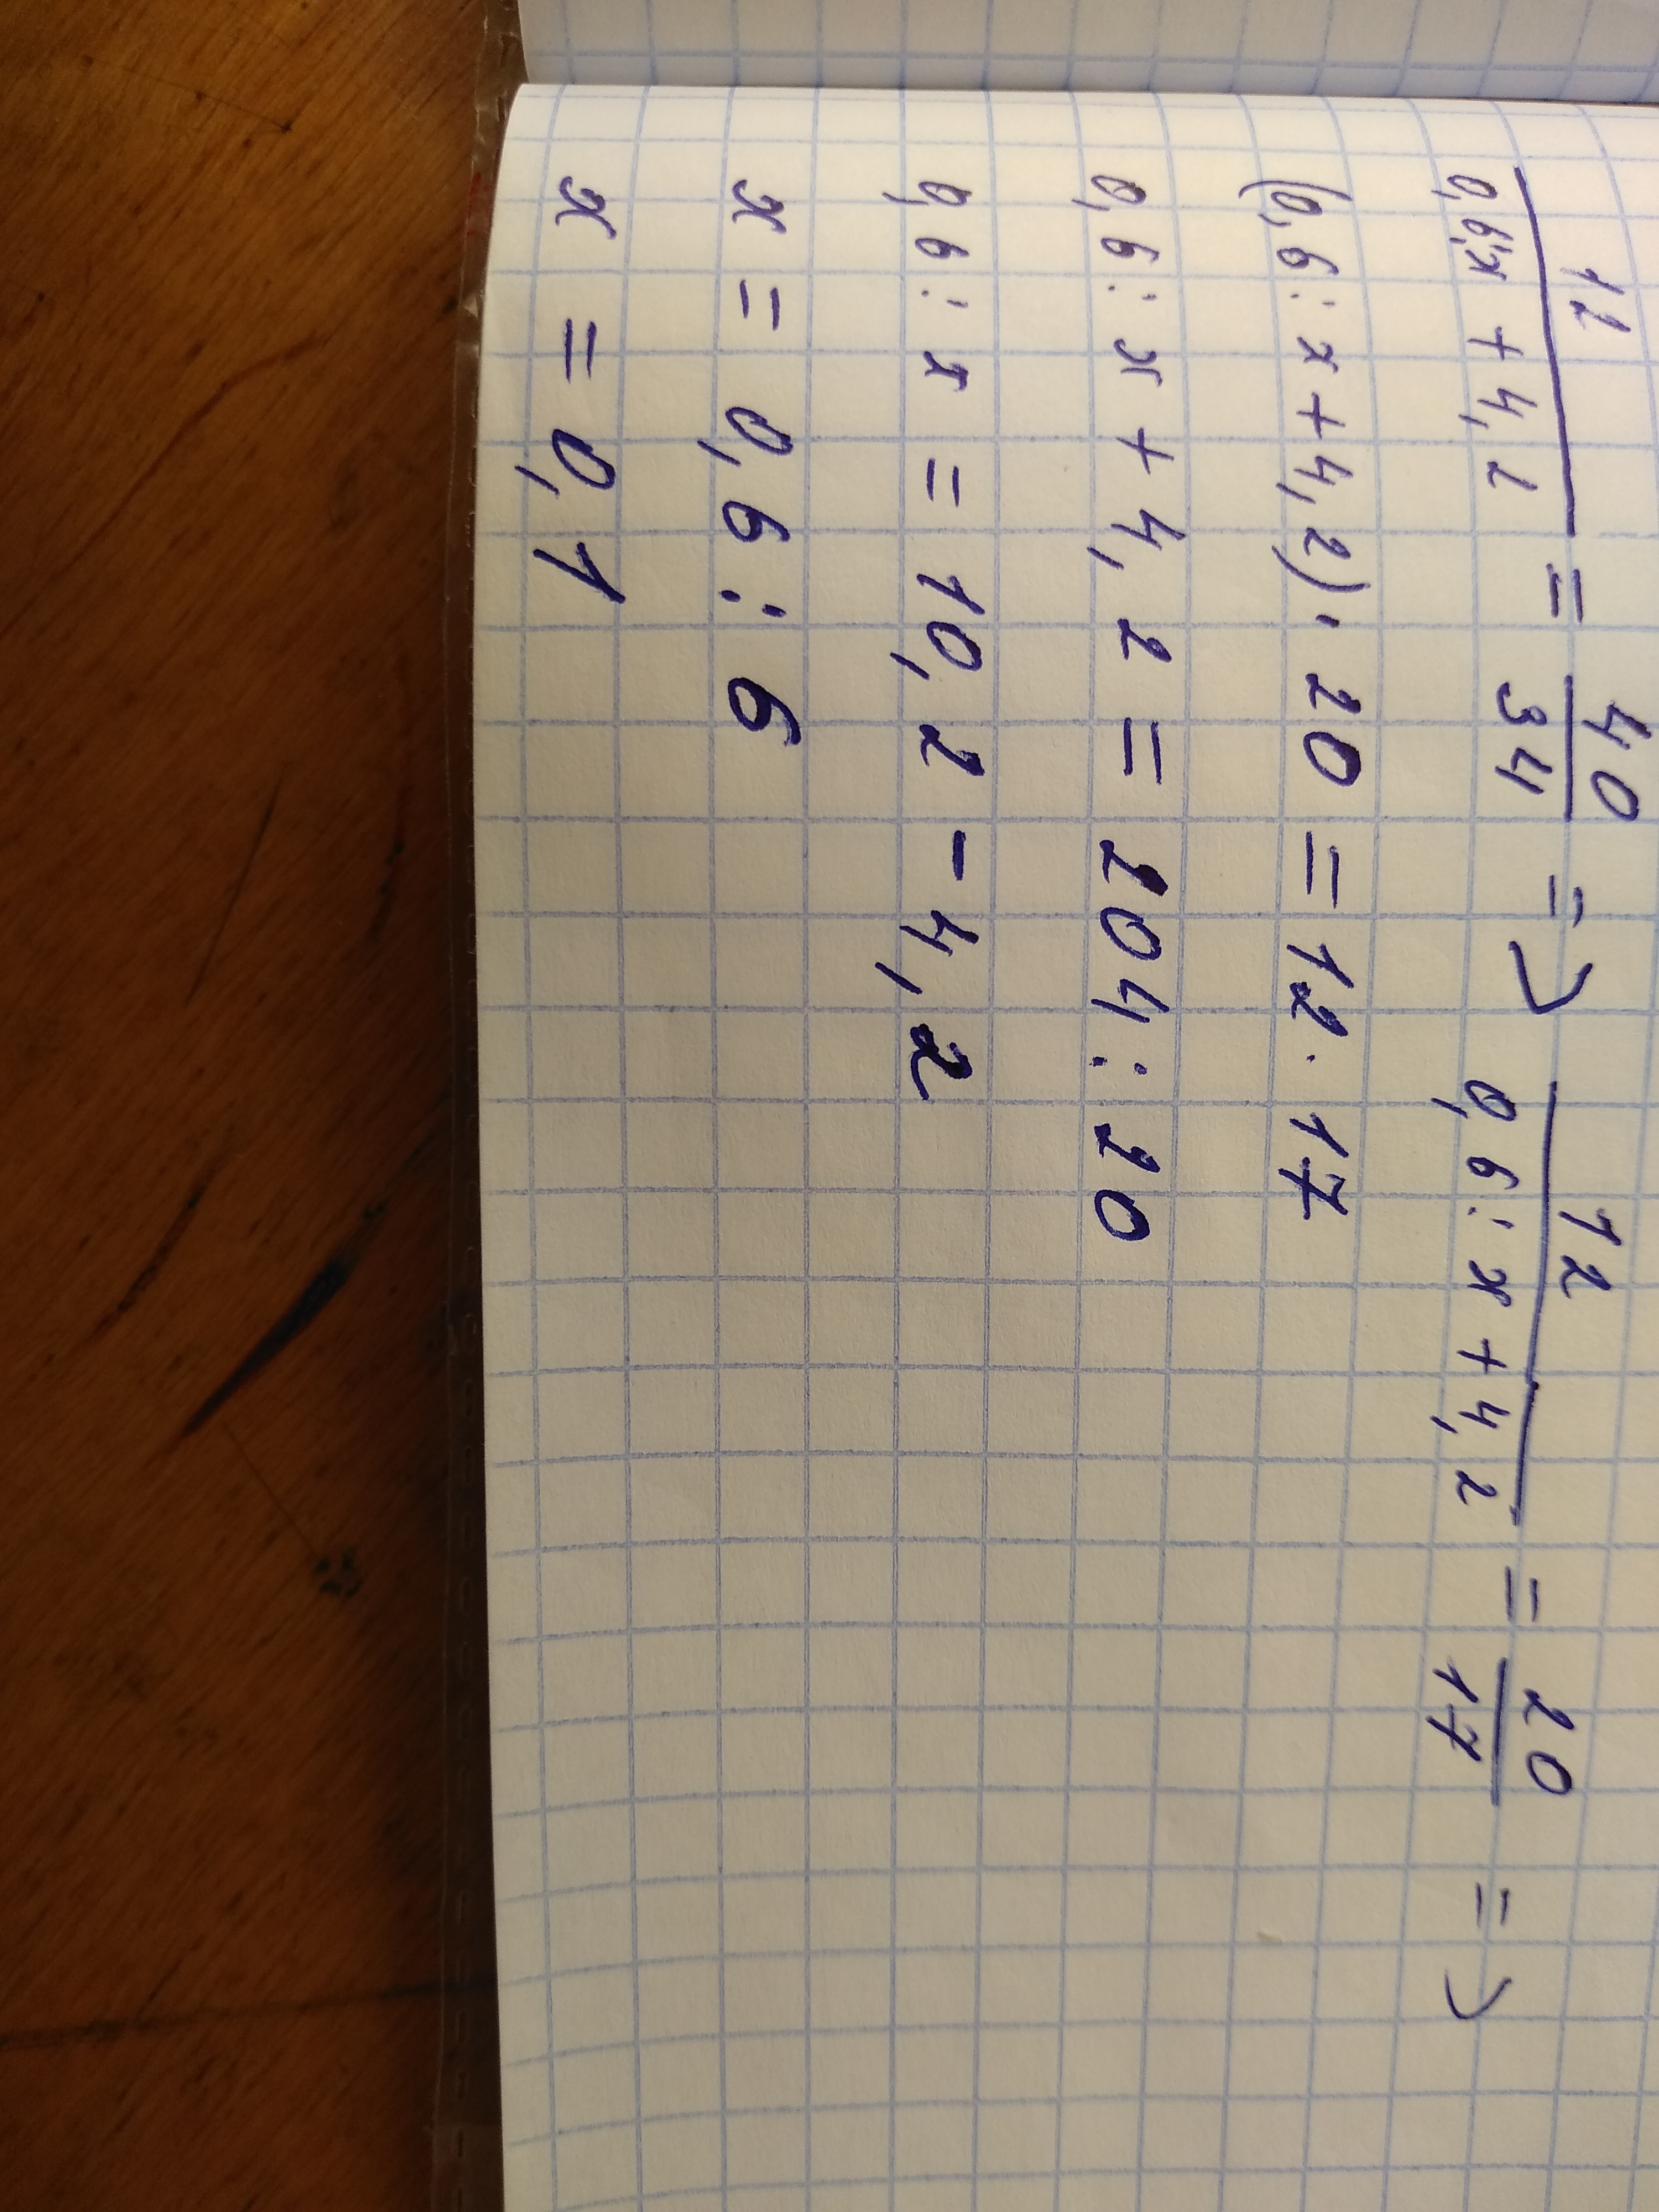 12/(0,6:x + 4,2) = 40/34 => 12/(0,6:x + 4,2) = 20/17 =>
(0,6:x + 4,2) · 20 = 12 · 17
0,6:x + 4,2 = 204:20
0,6:x = 10,2 - 4,2
x = 0,6:6
x = 0,1